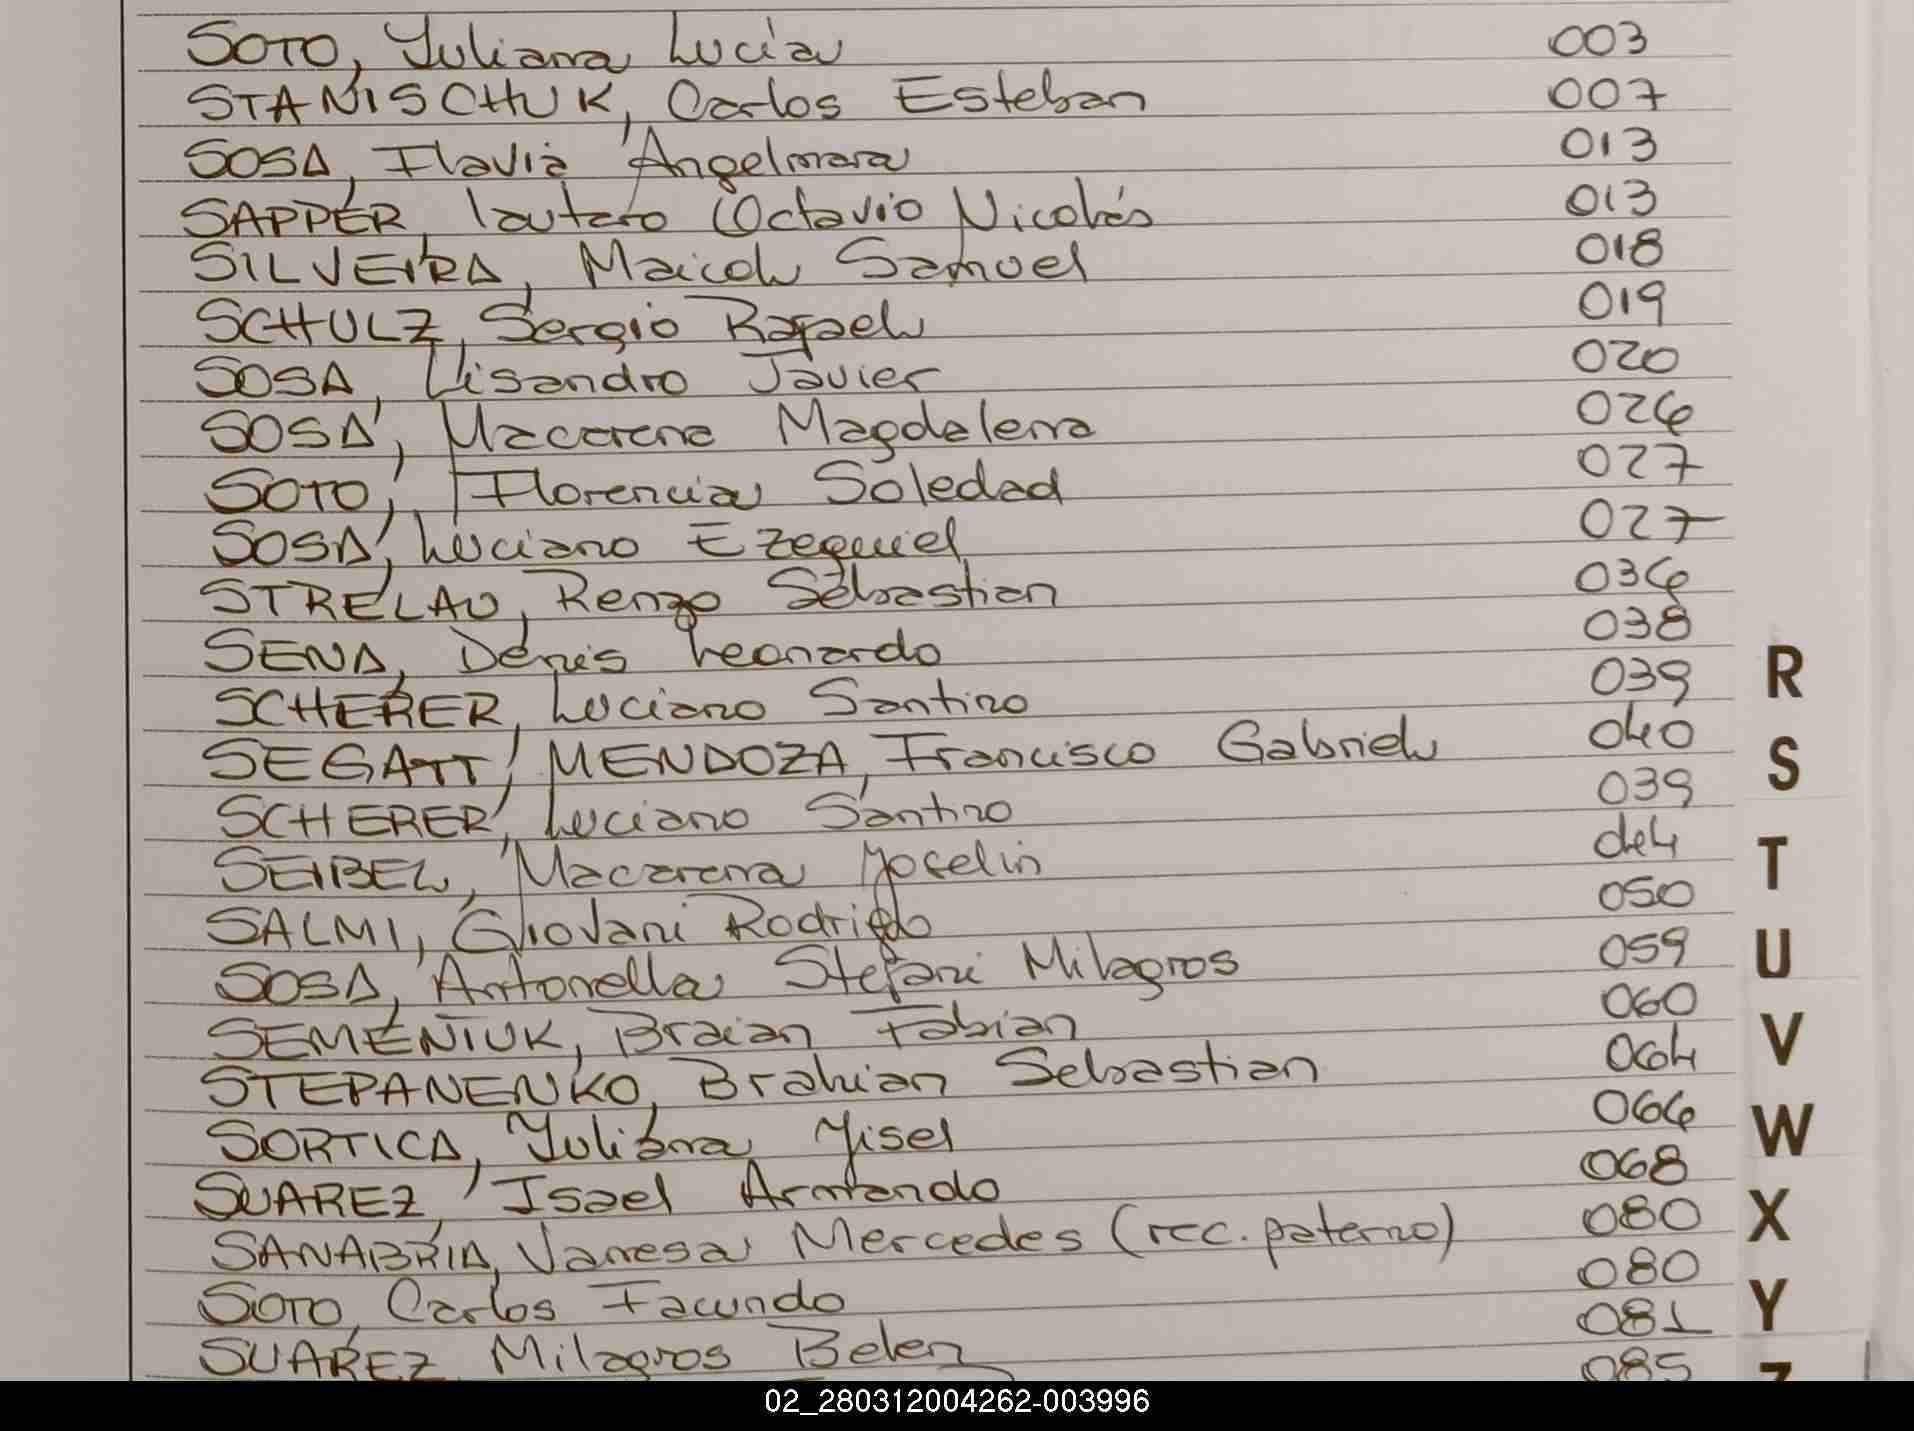 SOTO, Yuliana Lucía 003
STANISCHUK, Carlos Esteban 007
SOSA, Flavia Angelmara 013
SAPPER, lautaro Octavio Nicolás 013
SILVEIRA, Maicol Samuel 018
SCHULZ, Sergio Rafael 019
SOSA, Lisandro Javier 020
SOSA, Macarena Magdalena 026
SOTO, Florencia Soledad 027
SOSA, Luciano Ezequiel 027
STRELAU, Renzo Sebastian 036
SENA, Denis Leonardo 038
SCHERER, Luciano Santino 039
SEGATT MENDOZA, Francisco Gabriel 040
SCHERER, Luciano Santino 039
SEIBEL, Macarena Yocelin 044
SALMI, Giovani Rodrigo 050
SOSA, Antonella Stefani Milagros 059
SEMENIUK, Braian Fabian 060
STEPANENKO, Brahian Sebastian 064
SORTICA, Yuliana Yisel 066
SUAREZ, Isael Armando 068
SANABRIA, Vanesa Mercedes (rec. paterno) 080
SOTO, Carlos Facundo 080
SUAREZ Milagros Belen 081
085
R
S
T
U
V
W
X
Y
Z
02_280312004262-003996